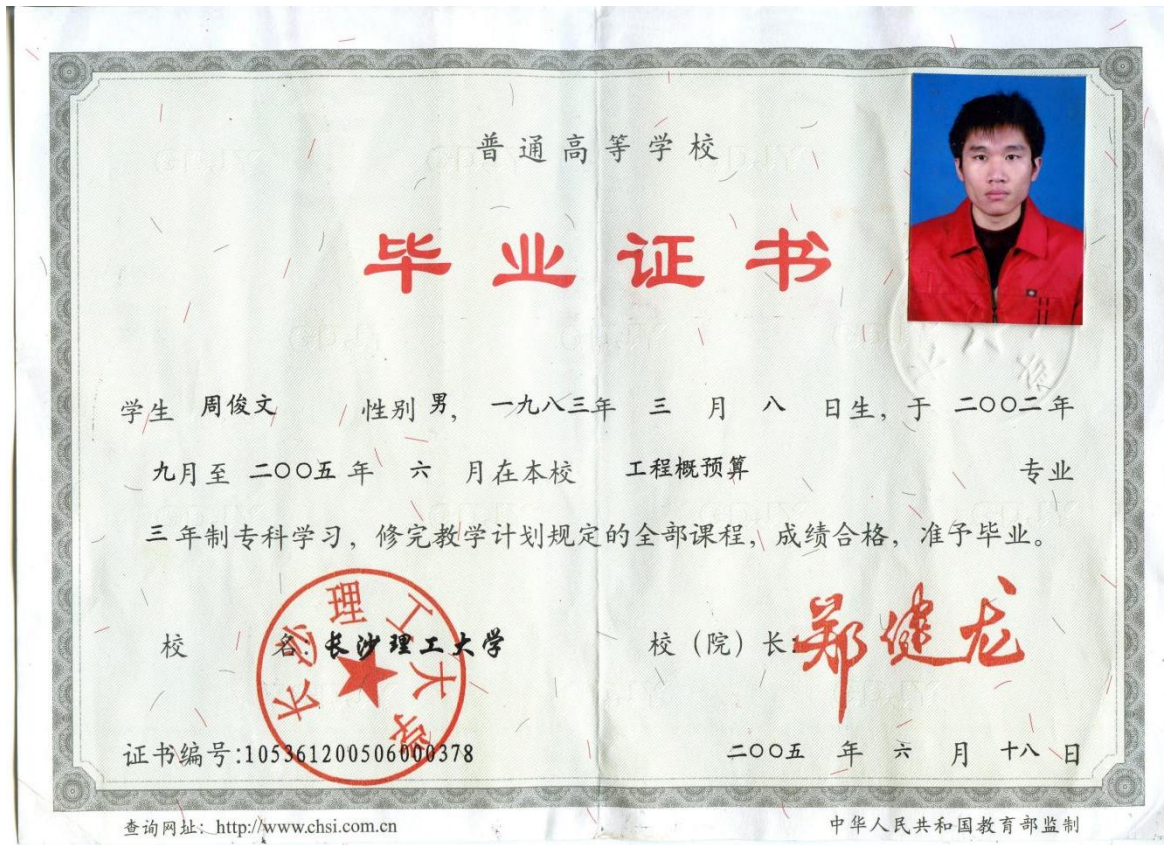 普通高等学校
毕业证书
学生 周俊文 性别 男, 一九八三年 三 月 八 日生, 于 二〇〇二年
九月至 二〇〇五 年 六 月在本校 工程概预算 专业
三年制专科学习, 修完教学计划规定的全部课程, 成绩合格, 准予毕业。
校 名: 长沙理工大学 校 (院) 长: 郑健龙
长沙理工大学
证书编号:105361200506000378 二〇〇五 年 六 月 十八 日
查询网址: http://www.chsi.com.cn 中华人民共和国教育部监制